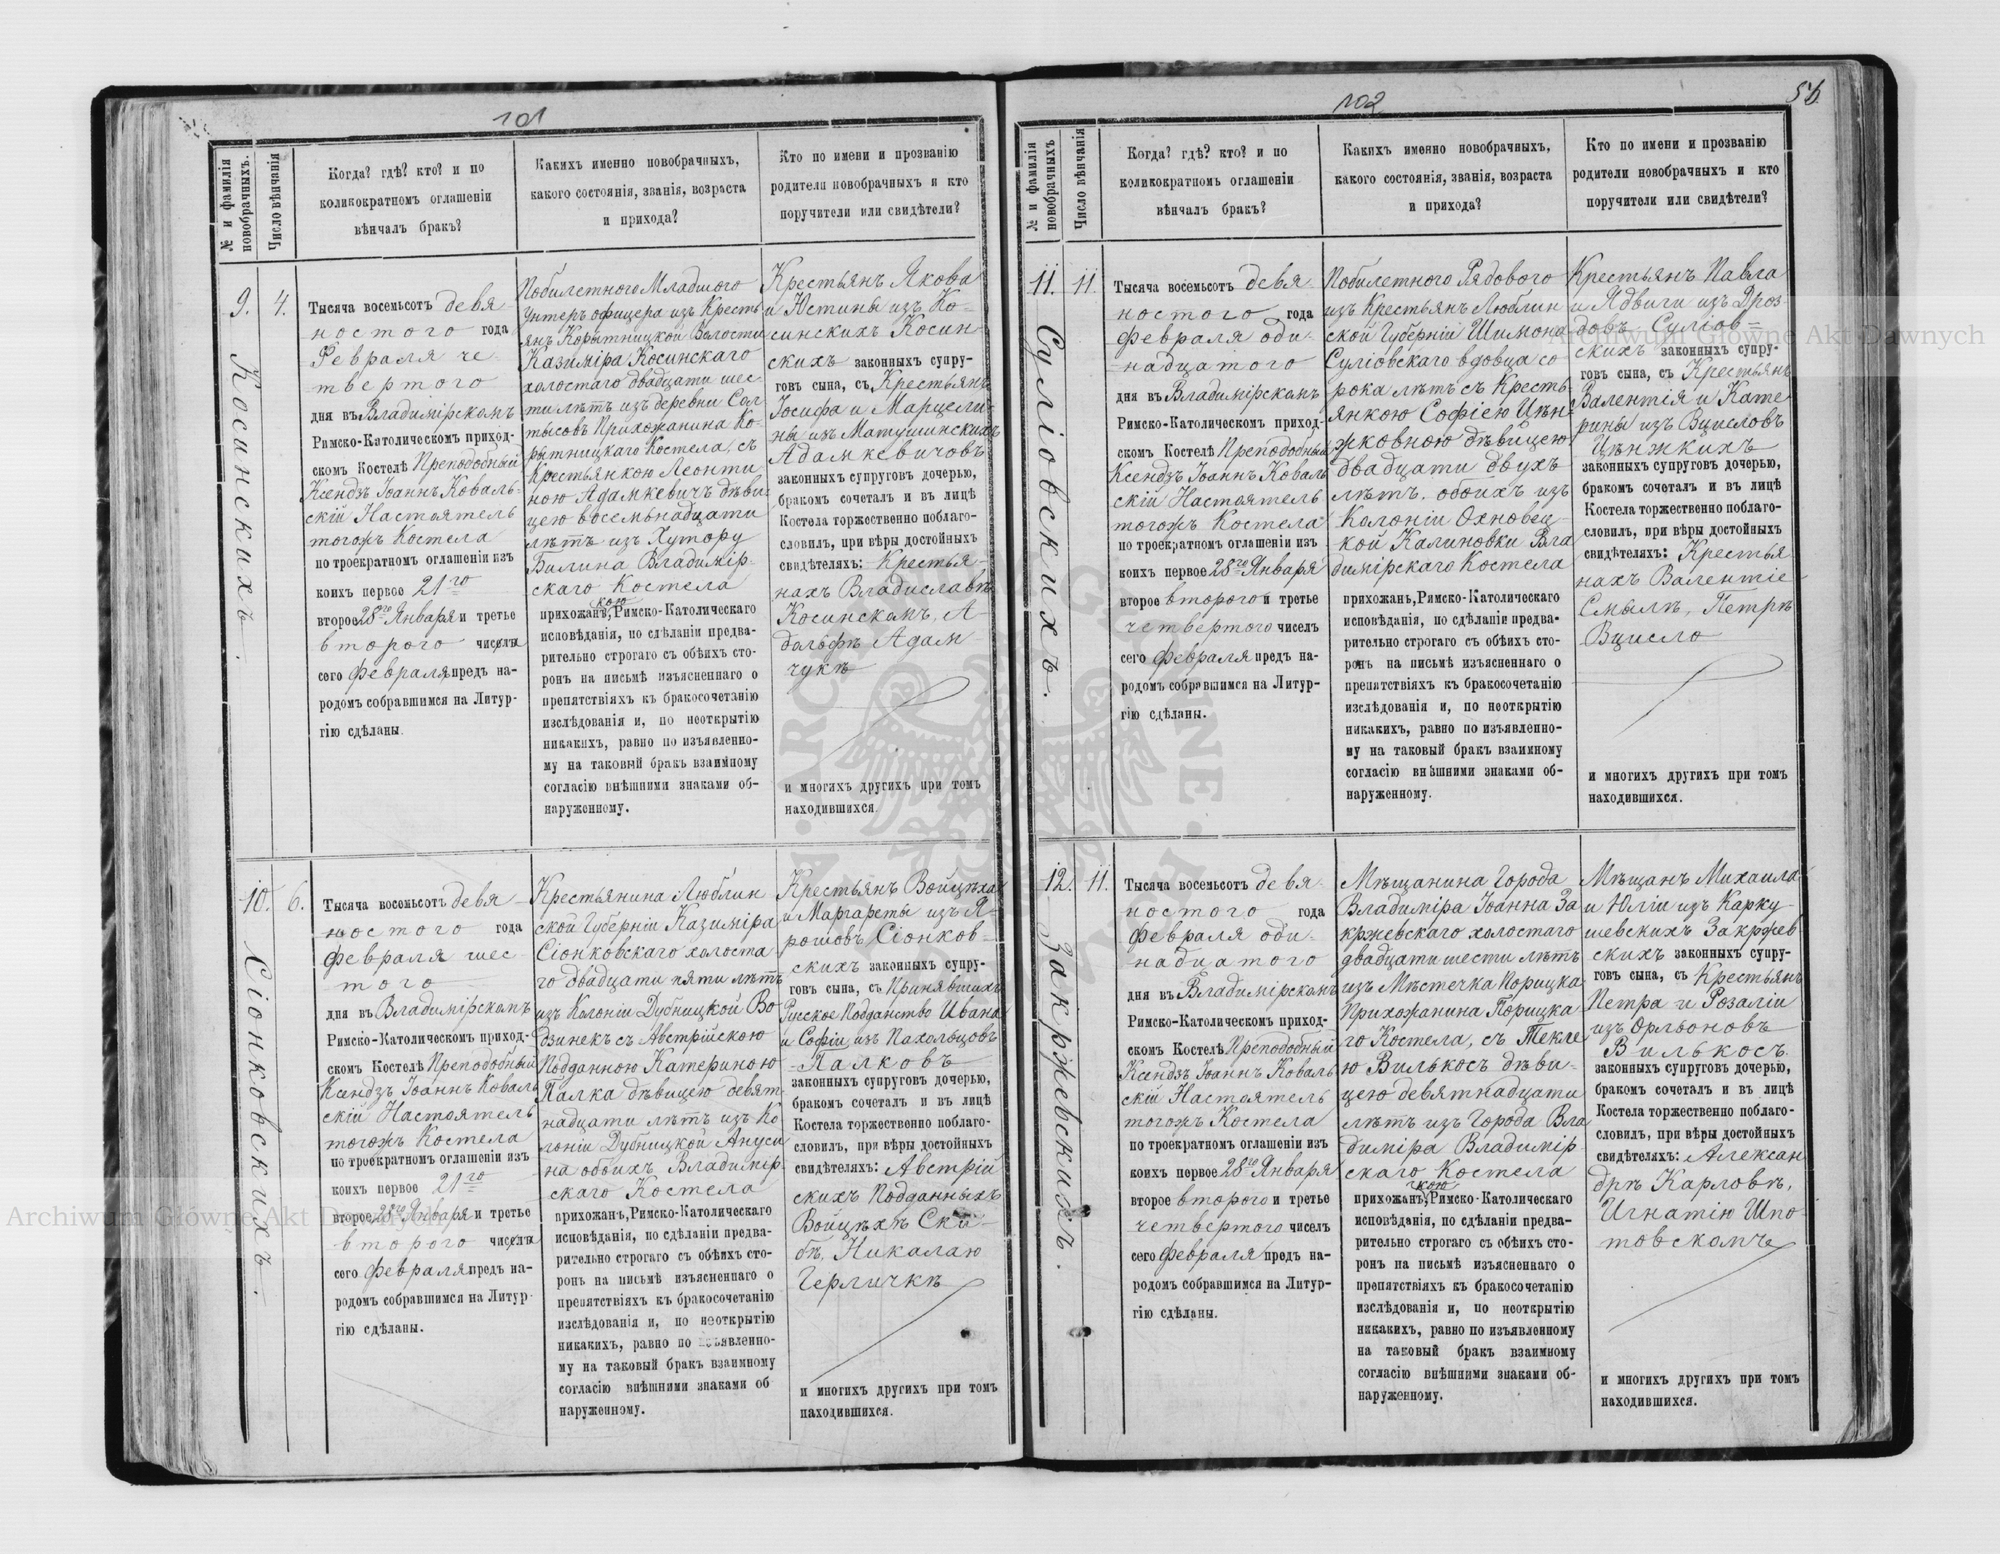 101
№ и фамилія новобрачныхъ.
Число вѣнчанія
Когда? гдѣ? кто? и по
коликократномъ оглашеніи
вѣнчалъ бракъ?
Какихъ именно новобрачныхъ,
какого состоянія, званія, возраста
и прихода?
Кто по имени и прозванію
родители новобрачныхъ и кто
поручители или свидѣтели?
9.
Косинскихъ.
4.
Тысяча восемьсотъ девя
ностого года
Февраля че-
твертого
дня въ Владимірскомъ
Римско-Католическомъ приход-
скомъ Костелѣ Преподобный
Ксендзъ Іоаннъ Коваль-
скій Настоятель
тогожъ Костела
по троекратномъ оглашеніи изъ
коихъ первое 21го
второе 28го Января и третье
второго числъ
сего Февраля предъ на-
родомъ собравшимся на Литур-
гію сдѣланы.
Побилетного Младшого
Унтеръ офицера изъ Кресть
янъ Корытницкой Волости
Казиміра Косинскаго
холостаго двадцати шес-
ти лѣтъ изъ деревни Сол
тысовъ Прихожанина Ко-
рытницкаго Костела, съ
Крестьянкою Леонти
ною Адамкевичъ дѣви-
цею восемьнадцати
лѣтъ изъ Хутору
Балина Владимір-
скаго Костела
прихожанъкою, Римско-Католическаго
исповѣданія, по сдѣланіи предва-
рительно строгаго съ обѣихъ сто-
ронъ на письмѣ изъясненнаго о
препятствіяхъ къ бракосочетанію
изслѣдованія и, по неоткрытію
никакихъ, равно по изъявленно-
му на таковый бракъ взаимному
согласію внѣшними знаками об-
наруженному.
Крестьянъ Якова
и Юстины изъ Ко-
синскихъ Косин
скихъ законныхъ супру-
говъ сына, съ Крестьянъ
Іосифа и Марцели-
ны изъ Матушинскихъ
Адамкевичовъ
законныхъ супруговъ дочерью,
бракомъ сочеталъ и въ лицѣ
Костела торжественно поблаго-
словилъ, при вѣры достойныхъ
свидѣтеляхъ: Крестья-
нахъ Владиславѣ
Косинскомъ, А-
дольфѣ Адам
чукѣ
и многихъ другихъ при томъ
находившихся.
10.
Сіонковскихъ.
6.
Тысяча восемьсотъ девя-
ностого года
Февраля шес-
того
дня въ Владимірскомъ
Римско-Католическомъ приход-
скомъ Костелѣ Преподобный
Ксендзъ Іоаннъ Коваль
скій Настоятель
тогожъ Костела
по троекратномъ оглашеніи изъ
коихъ первое 21го
второе 28го Января и третье
второго числъ
сего Февраля предъ на-
родомъ собравшимся на Литур-
гію сдѣланы.
Крестьянина Люблин
ской Губерніи Казиміра
Сіонковскаго холоста
го двадцати пяти лѣтъ
изъ Колоніи Дубницкой Во
дзинекъ съ Австрійскою
Подданною Катериною
Палка дѣвицею девят
надцати лѣтъ изъ Ко
лоніи Дубницкой Ануси
на обоихъ Владимір
скаго Костела
прихожанъ, Римско-Католическаго
исповѣданія, по сдѣланіи предва-
рительно строгаго съ обѣихъ сто-
ронъ на письмѣ изъясненнаго о
препятствіяхъ къ бракосочетанію
изслѣдованія и, по неоткрытію
никакихъ, равно по изъявленно-
му на таковый бракъ взаимному
согласію внѣшними знаками об
наруженному.
Крестьянъ Войцѣха
и Маргареты изъ Я-
рошовъ Сіонков-
скихъ законныхъ супру-
говъ сына, съ Принявшихъ
Русское Подданство Ивана
и Софіи изъ Пахольцовъ
Палковъ
законныхъ супруговъ дочерью,
бракомъ сочеталъ и въ лицѣ
Костела торжественно поблаго-
словилъ, при вѣры достойныхъ
свидѣтеляхъ: Австрій
скихъ Подданныхъ
Войцѣхѣ Ски-
бѣ, Николаю
Герличкѣ
и многихъ другихъ при томъ
находившихся.
102
56
№ и фамилія новобрачныхъ
Число вѣнчанія
Когда? гдѣ? кто? и по
коликократномъ оглашеніи
вѣнчалъ бракъ?
Какихъ именно новобрачныхъ,
какого состоянія, званія, возраста
и прихода?
Кто по имени и прозванію
родители новобрачныхъ и кто
поручители или свидѣтели?
11.
Суліовскихъ.
11.
Тысяча восемьсотъ девя-
ностого года
Февраля оди-
надцатого
дня въ Владимірскомъ
Римско-Католическомъ приход-
скомъ Костелѣ Преподобный
Ксендзъ Іоаннъ Коваль
скій Настоятель
тогожъ Костела
по троекратномъ оглашеніи изъ
коихъ первое 28го Января
второе второго и третье
четвертого чиселъ
сего Февраля предъ на-
родомъ собравшимся на Литур-
гію сдѣланы.
Побилетного Рядового
изъ Крестьянъ Люблин
ской Губерніи Шимона
Суліовскаго вдовца со
рока лѣтъ съ Кресть-
янкою Софіею Цѣн-
жковною дѣвицею
двадцати двухъ
лѣтъ. обоихъ изъ
Колоніи Охновец-
кой Калиновки Вла
димірскаго Костела
прихожанъ, Римско-Католическаго
исповѣданія, по сдѣланіи предва-
рительно строгаго съ обѣихъ сто-
ронъ на письмѣ изъясненнаго о
препятствіяхъ къ бракосочетанію
изслѣдованія и, по неоткрытію
никакихъ, равно по изъявленно-
му на таковый бракъ взаимному
согласію внѣшними знаками об-
наруженному.
Крестьянъ Павла
и Ядвиги изъ Дроз-
довъ Суліов-
скихъ законныхъ супру-
говъ сына, съ Крестьянъ
Валентія и Кате-
рины изъ Вцисловъ
Цѣнжкихъ
законныхъ супруговъ дочерью,
бракомъ сочеталъ и въ лицѣ
Костела торжественно поблаго-
словилъ, при вѣры достойныхъ
свидѣтеляхъ: Крестья
нахъ Валентіе
Смылѣ, Петрѣ
Вцисло
и многихъ другихъ при томъ
находившихся.
12.
Закржевскихъ.
11.
Тысяча восемьсотъ девя-
ностого года
Февраля оди-
надцатого
дня въ Владимірскомъ
Римско-Католическомъ приход-
скомъ Костелѣ Преподобный
Ксендзъ Іоаннъ Коваль
скій Настоятель
тогожъ Костела
по троекратномъ оглашеніи изъ
коихъ первое 28го Января
второе второго и третье
четвертого чиселъ
сего Февраля предъ на-
родомъ собравшимся на Литур-
гію сдѣланы.
Мѣщанина Города
Владиміра Іоанна За
кржевскаго холостаго
двадцати шести лѣтъ
изъ Мѣстечка Порицка
Прихожанина Порицка-
го Костела, съ Текле
ю Вилькосъ дѣви-
цею девятнадцати
лѣтъ изъ Города Вла
диміра Владимір
скаго Костела
прихожанъкою, Римско-Католическаго
исповѣданія, по сдѣланіи предва-
рительно строгаго съ обѣихъ сто-
ронъ на письмѣ изъясненнаго о
препятствіяхъ къ бракосочетанію
изслѣдованія и, по неоткрытію
никакихъ, равно по изъявленному
на таковый бракъ взаимному
согласію внѣшними знаками об-
наруженному.
Мѣщанъ Михаила
и Юліи изъ Карку-
шевскихъ Закржев
скихъ законныхъ супру-
говъ сына, съ Крестьянъ
Петра и Розаліи
изъ Орльоновъ
Вилькосъ
законныхъ супруговъ дочерью,
бракомъ сочеталъ и въ лицѣ
Костела торжественно поблаго-
словилъ, при вѣры достойныхъ
свидѣтеляхъ: Алексан
дрѣ Карловѣ,
Игнатію Шпо-
товскомъ
и многихъ другихъ при томъ
находившихся.
Archiwum Główne Akt Dawnych
Archiwum Główne Akt Dawnych